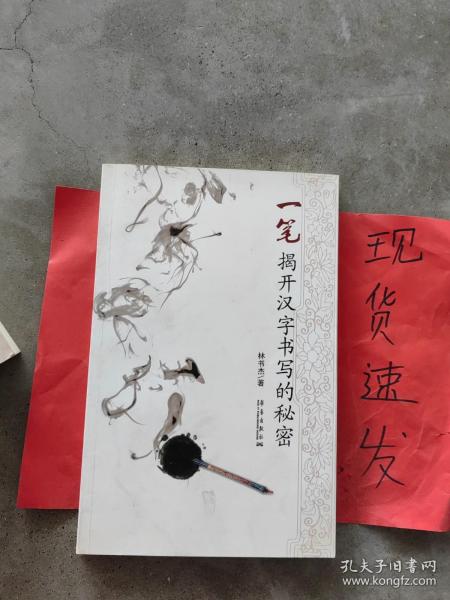 一笔
揭开汉字书写的秘密
林书杰/著
现货速发
孔夫子旧书网
www.kongfz.com